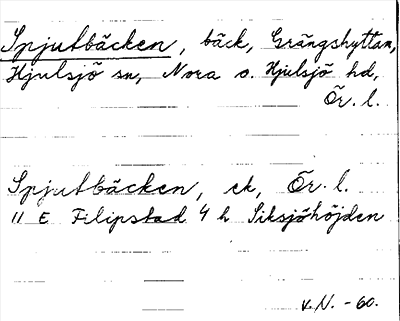 Spjutbäcken, bäck, Grängshyttan,
Hjulsjö sn, Nora o. Hjulsjö hd,
Ör. l.
Spjutbäcken, ek, Ör. l.
11 E Filipstad 4 h Siksjöhöjden
v. N. -60.